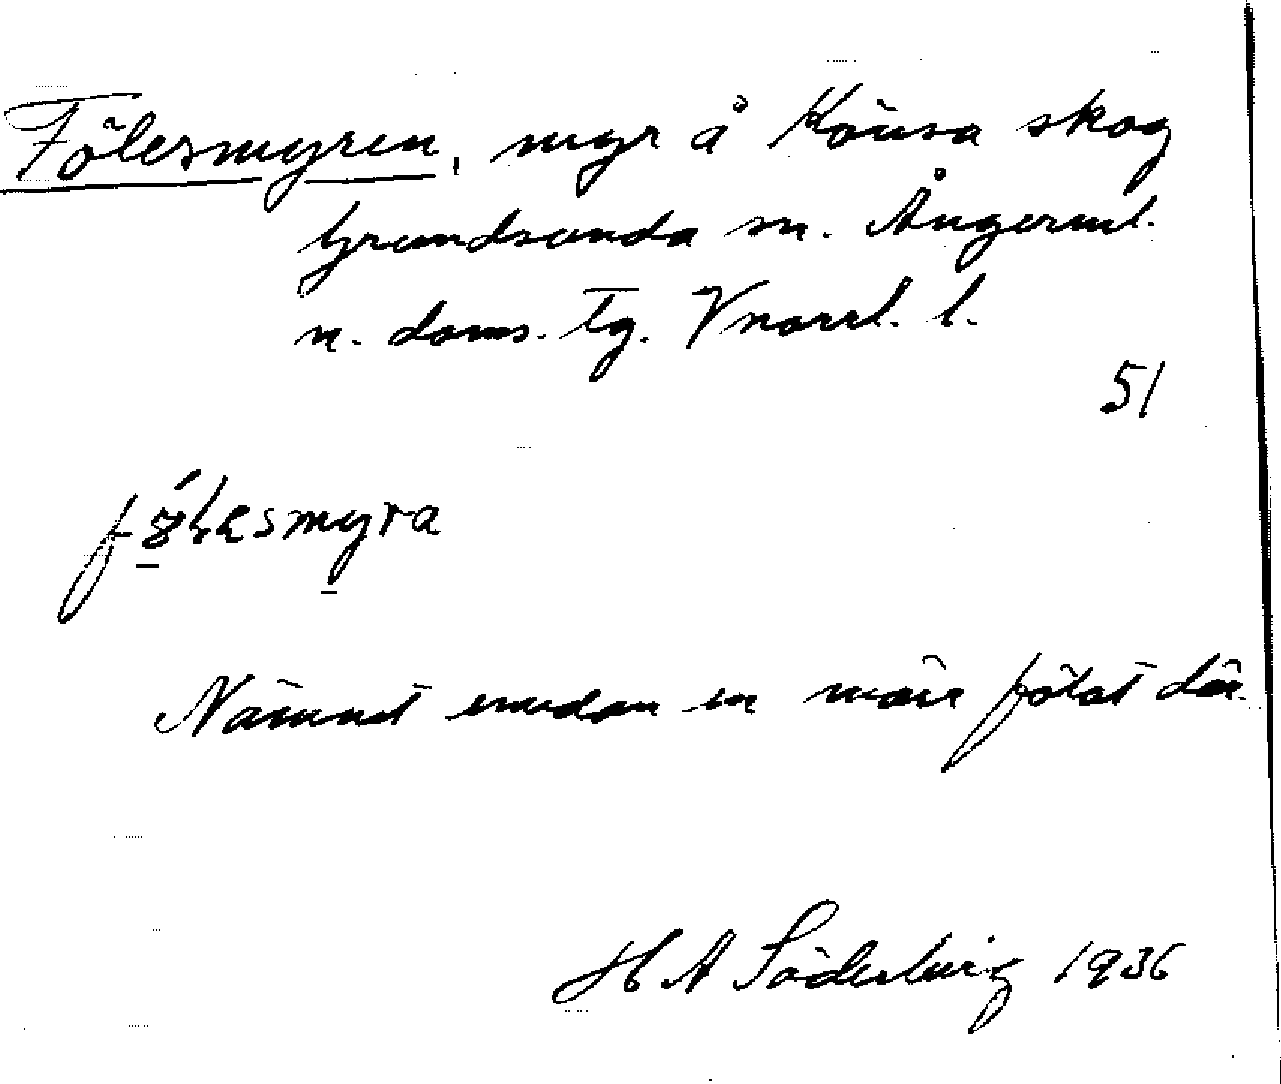 Fölesmyren, myr å Könsa skog
Grundsunda sn. Ångerml.
n. doms. tg. Vnorrl. l.
51
Nämnd emedan en märr fölat där.
H A Söderberg 1936